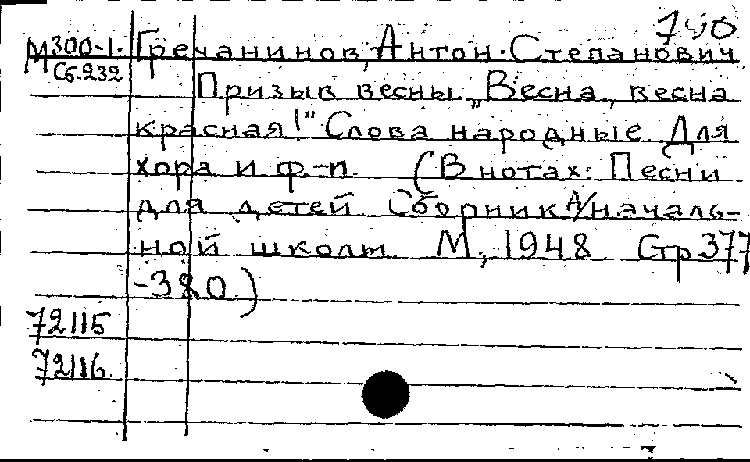 740
М300-1. Гречанинов, Антон Степанович
Сб.232
Призыв весны „Весна, весна
красная!" Слова народные. Для
хора и ф.-п. (В нотах: Песни
для детей Сборник д/началь-
ной школы. М., 1948 Стр 377
-380.)
72115
72116.